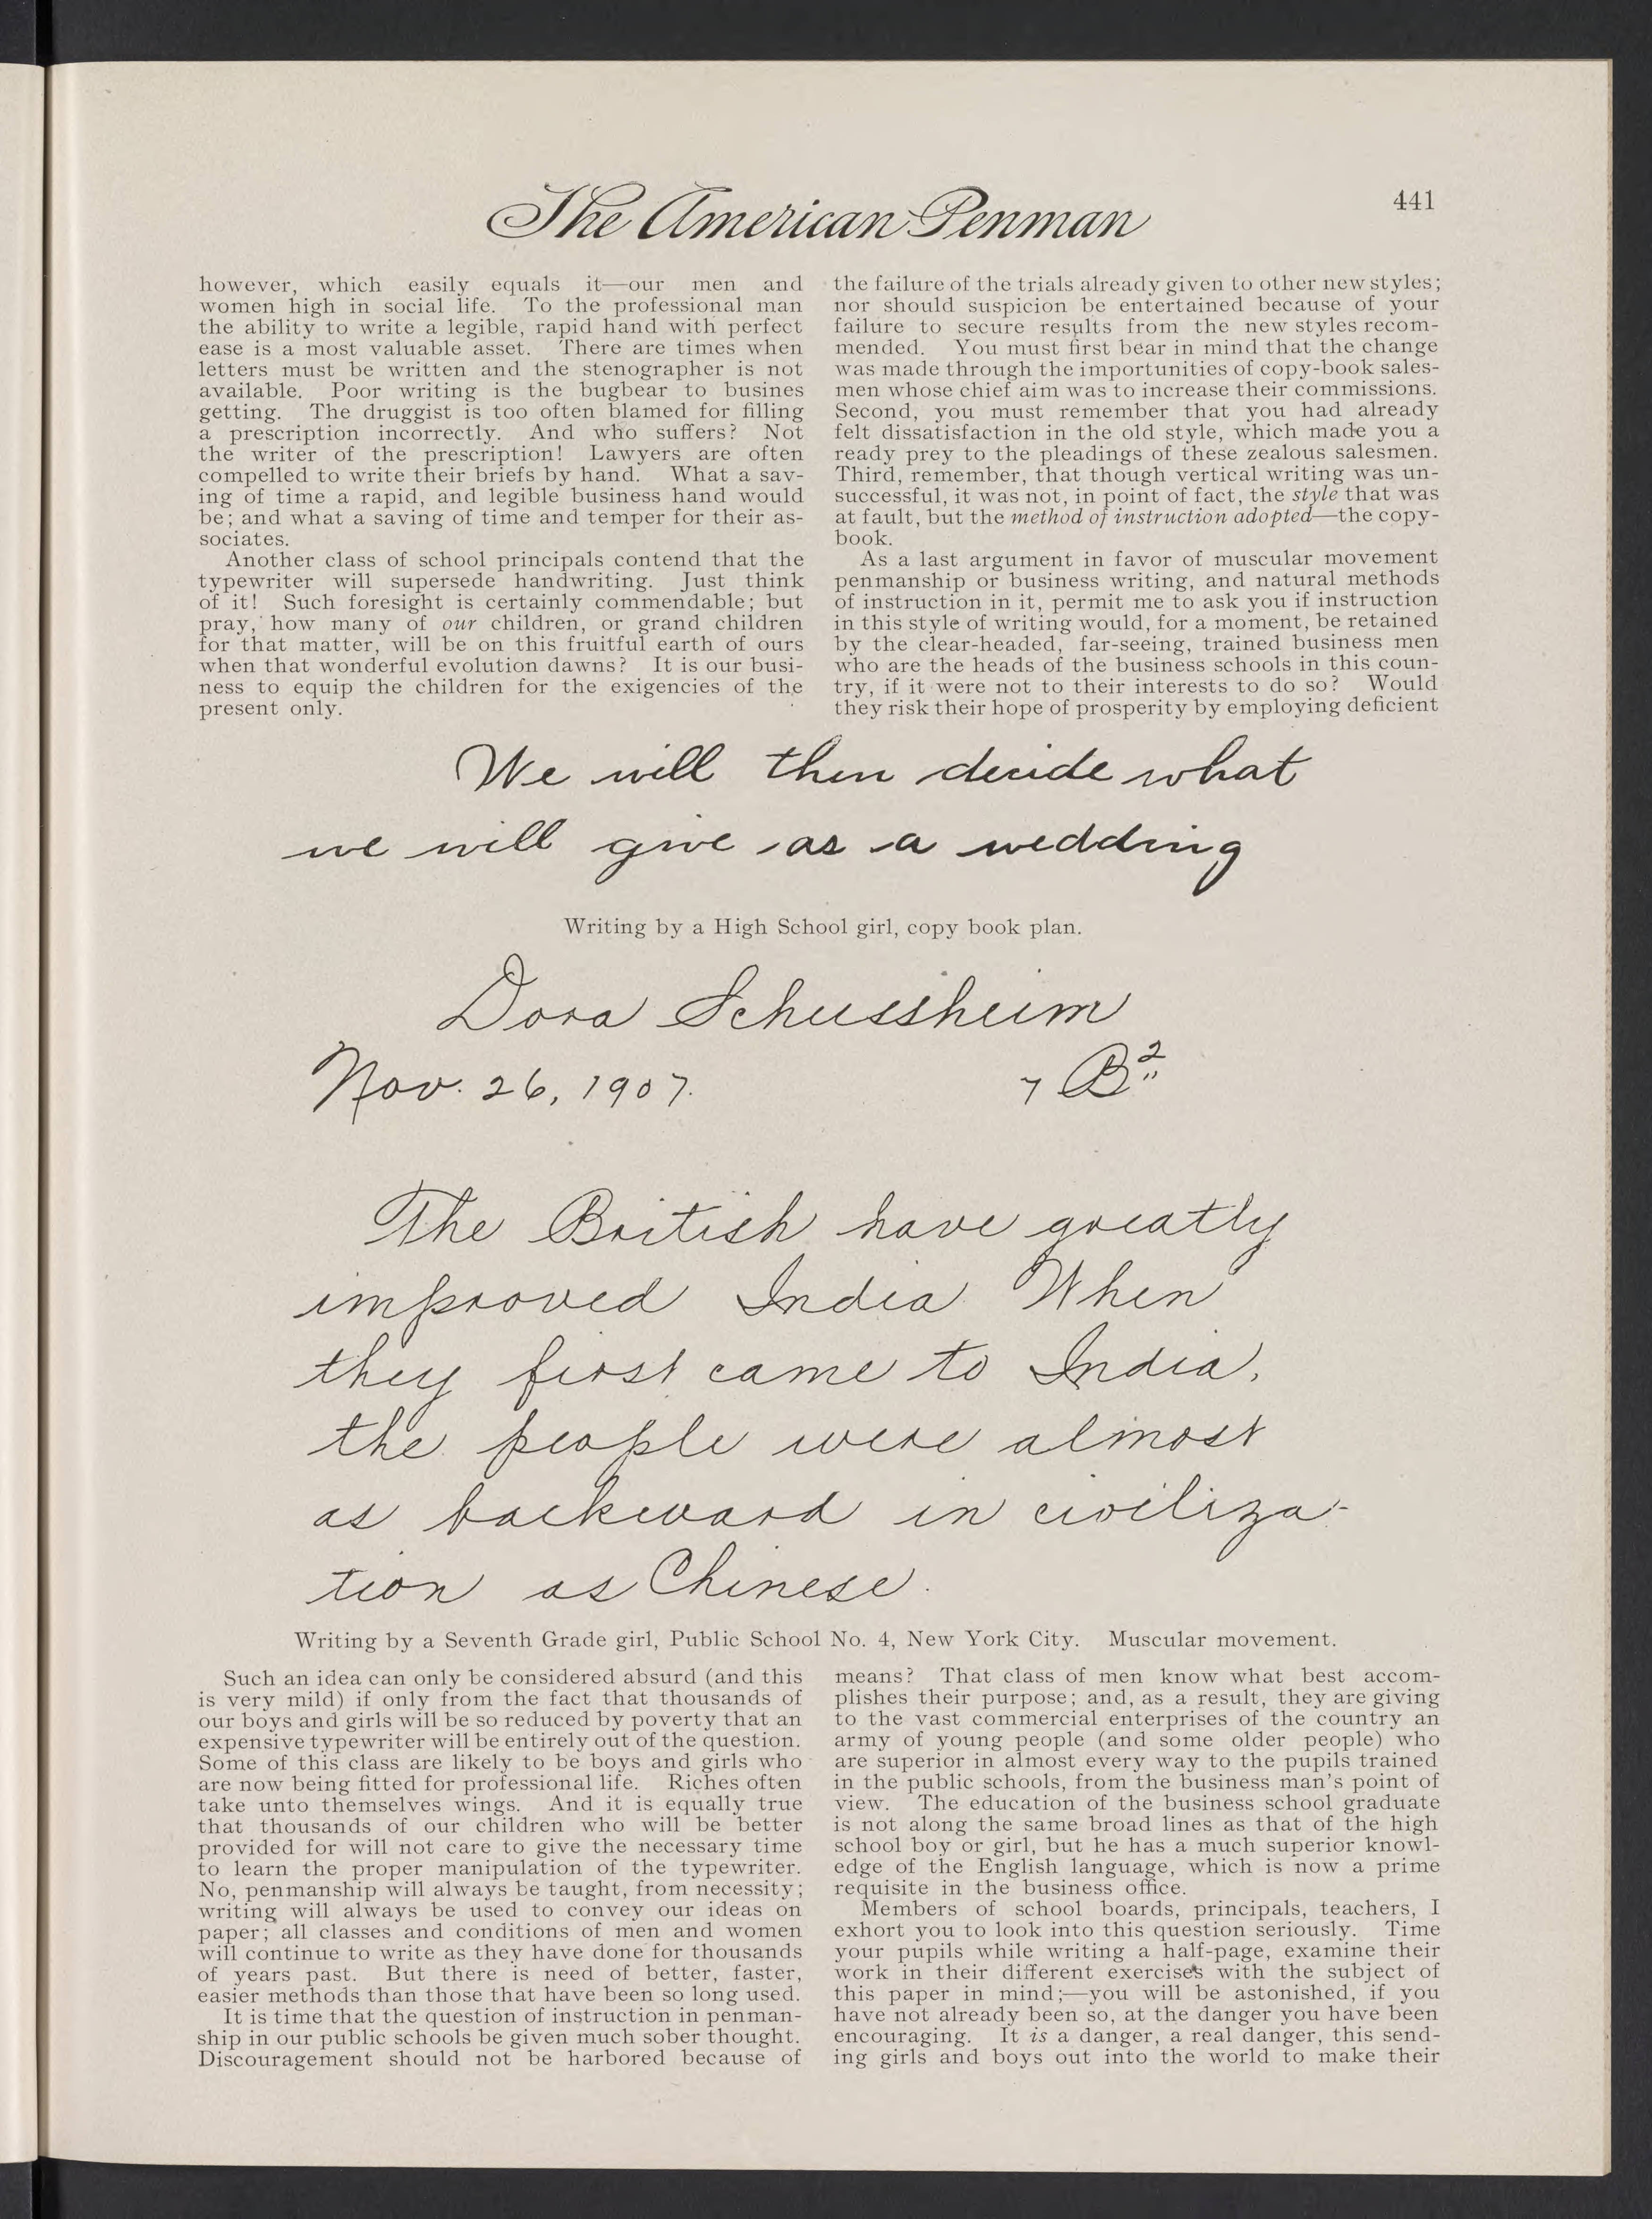 The American Penman
441
however, which easily equals it—our men and
women high in social life. To the professional man
the ability to write a legible, rapid hand with perfect
ease is a most valuable asset. There are times when
letters must be written and the stenographer is not
available. Poor writing is the bugbear to busines
getting. The druggist is too often blamed for filling
a prescription incorrectly. And who suffers? Not
the writer of the prescription! Lawyers are often
compelled to write their briefs by hand. What a sav-
ing of time a rapid, and legible business hand would
be; and what a saving of time and temper for their as-
sociates.
Another class of school principals contend that the
typewriter will supersede handwriting. Just think
of it! Such foresight is certainly commendable; but
pray, how many of our children, or grand children
for that matter, will be on this fruitful earth of ours
when that wonderful evolution dawns? It is our busi-
ness to equip the children for the exigencies of the
present only.
the failure of the trials already given to other new styles;
nor should suspicion be entertained because of your
failure to secure results from the new styles recom-
mended. You must first bear in mind that the change
was made through the importunities of copy-book sales-
men whose chief aim was to increase their commissions.
Second, you must remember that you had already
felt dissatisfaction in the old style, which made you a
ready prey to the pleadings of these zealous salesmen.
Third, remember, that though vertical writing was un-
successful, it was not, in point of fact, the style that was
at fault, but the method of instruction adopted—the copy-
book.
As a last argument in favor of muscular movement
penmanship or business writing, and natural methods
of instruction in it, permit me to ask you if instruction
in this style of writing would, for a moment, be retained
by the clear-headed, far-seeing, trained business men
who are the heads of the business schools in this coun-
try, if it were not to their interests to do so? Would
they risk their hope of prosperity by employing deficient
We will then decide what
we will give as a wedding
Writing by a High School girl, copy book plan.
Dora Schussheim
Nov. 26, 1907. 7 B²
The British have greatly
improved India When
they first came to India,
the people were almost
as backward in civiliza-
tion as Chinese.
Writing by a Seventh Grade girl, Public School No. 4, New York City. Muscular movement.
Such an idea can only be considered absurd (and this
is very mild) if only from the fact that thousands of
our boys and girls will be so reduced by poverty that an
expensive typewriter will be entirely out of the question.
Some of this class are likely to be boys and girls who
are now being fitted for professional life. Riches often
take unto themselves wings. And it is equally true
that thousands of our children who will be better
provided for will not care to give the necessary time
to learn the proper manipulation of the typewriter.
No, penmanship will always be taught, from necessity;
writing will always be used to convey our ideas on
paper; all classes and conditions of men and women
will continue to write as they have done for thousands
of years past. But there is need of better, faster,
easier methods than those that have been so long used.
It is time that the question of instruction in penman-
ship in our public schools be given much sober thought.
Discouragement should not be harbored because of
means? That class of men know what best accom-
plishes their purpose; and, as a result, they are giving
to the vast commercial enterprises of the country an
army of young people (and some older people) who
are superior in almost every way to the pupils trained
in the public schools, from the business man's point of
view. The education of the business school graduate
is not along the same broad lines as that of the high
school boy or girl, but he has a much superior knowl-
edge of the English language, which is now a prime
requisite in the business office.
Members of school boards, principals, teachers, I
exhort you to look into this question seriously. Time
your pupils while writing a half-page, examine their
work in their different exercises with the subject of
this paper in mind;—you will be astonished, if you
have not already been so, at the danger you have been
encouraging. It is a danger, a real danger, this send-
ing girls and boys out into the world to make their